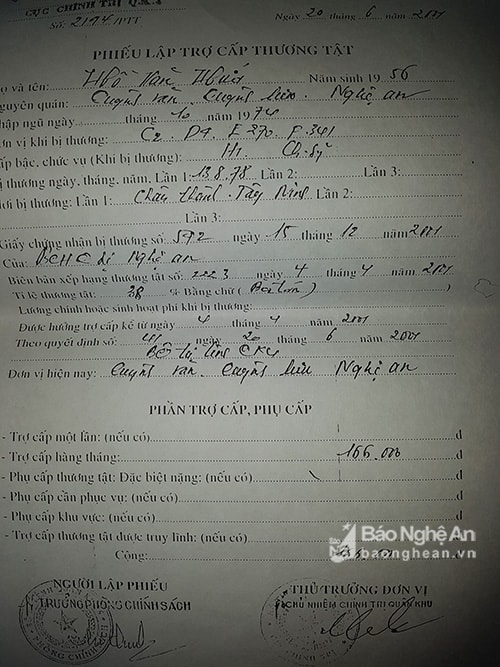 CỤC CHÍNH TRỊ Q.K.4
Số: 2174/PTT Ngày 20 tháng 6 / 2001
PHIẾU LẬP TRỢ CẤP THƯƠNG TẬT
Họ và tên: Hồ Năm sinh 1956
Nguyên quán: Quỳnh văn . Quỳnh lưu . Nghệ an
nhập ngũ ngày tháng 10 năm 1974
Đơn vị khi bị thương: C2 D7 E 270 F 341
Cấp bậc, chức vụ (Khi bị thương): H1 Ch.sỹ
Bị thương ngày, tháng, năm, Lần 1: 13.8.78 Lần 2: Lần 3:
Nơi bị thương: Lần 1: Châu thành . Tây Ninh Lần 2:
Lần 3:
Giấy chứng nhận bị thương số: 592 ngày 15 tháng 12 năm 2001
Của: BCHQS Nghệ an
Biên bản xếp hạng thương tật số: 2223 ngày 4 tháng 4 năm 2001
Tỉ lệ thương tật: 38 % Bằng chữ ( )
Lương chính hoặc sinh hoạt phí khi bị thương:
Được hưởng trợ cấp kể từ ngày 4 tháng 4 năm 2001
Theo quyết định số: 41 ngày 20 tháng 6 năm 2001
Bộ tư lệnh QK4
Đơn vị hiện nay: Quỳnh văn . Quỳnh lưu Nghệ an
PHẦN TRỢ CẤP, PHỤ CẤP
- Trợ cấp một lần: (nếu có) đ
- Trợ cấp hàng tháng: 166.000 đ
- Phụ cấp thương tật: Đặc biệt nặng: (nếu có) đ
- Phụ cấp cần phục vụ: (nếu có) đ
- Phụ cấp khu vực: (nếu có) đ
- Trợ cấp thương tật được truy lĩnh: (nếu có) đ
Cộng: đ
Báo Nghệ An
baonghean.vn
NGƯỜI LẬP PHIẾU THỦ TRƯỞNG ĐƠN VỊ
TRƯỞNG PHÒNG CHÍNH SÁCH CHỦ NHIỆM CHÍNH TRỊ QUÂN KHU